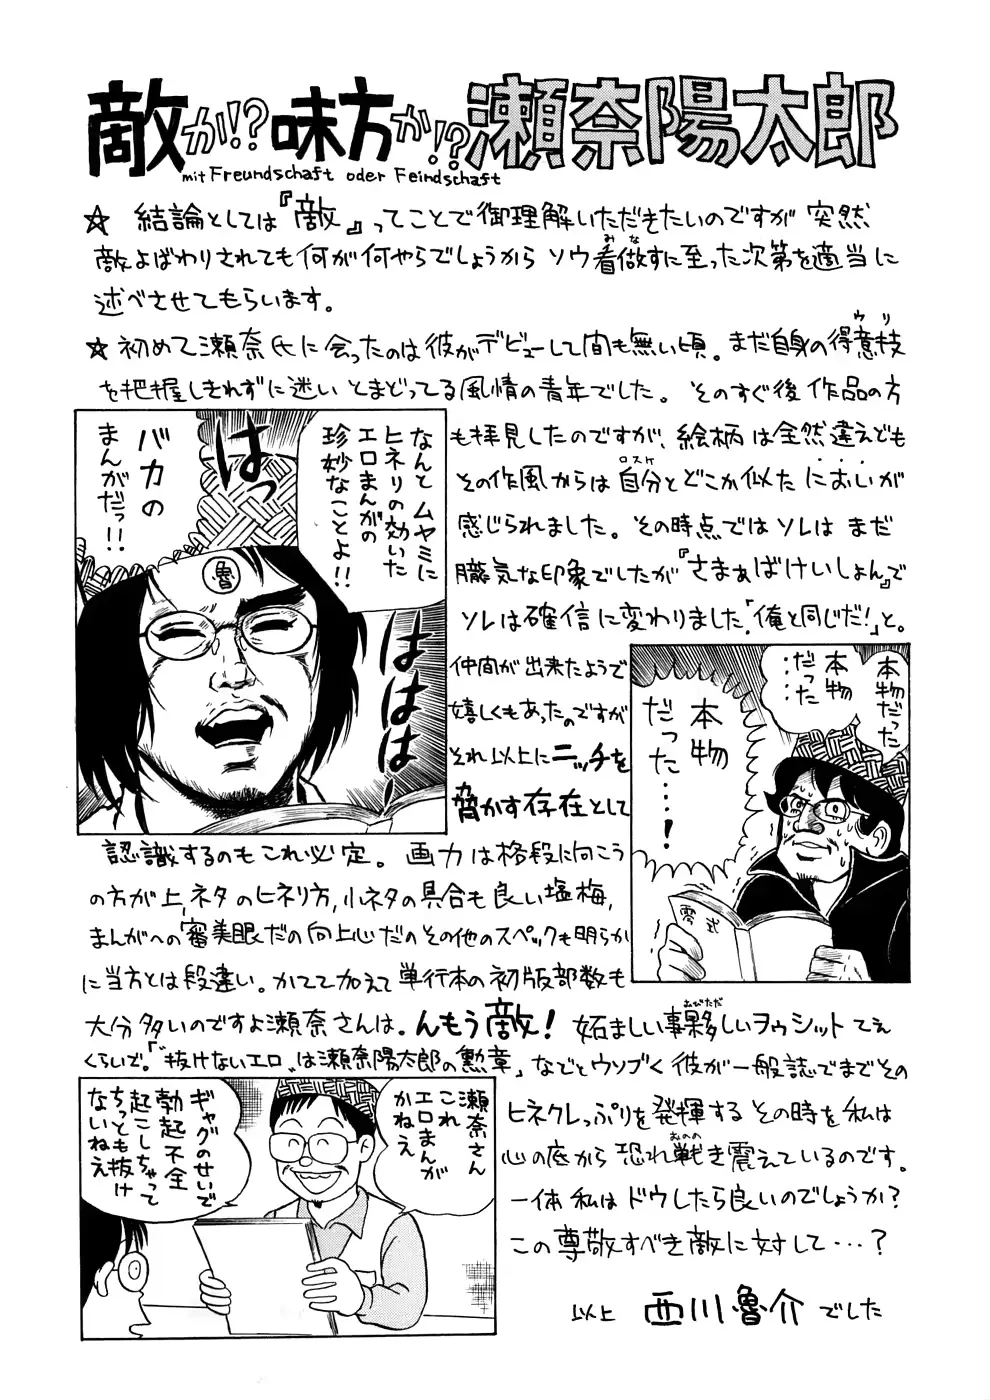 敵か!?味方か!?瀬奈陽太郎
mit Freundschaft oder Feindschaft
☆ 結論としては『敵』ってことで御理解いただきたいのですが 突然
敵よばわりされても何が何やらでしょうから ソウ看做すに至った次第を適当に
みな
述べさせてもらいます。
☆初めて瀬奈氏に会ったのは彼がデビューして間も無い頃。まだ自身の得意技
ウリ
を把握しきれずに迷い とまどってる風情の青年でした。そのすぐ後 作品の方
も拝見したのですが、絵柄は全然違えども
その作風からは自分とどこか似たにおいが
ロスケ
感じられました。その時点ではソレは まだ
朧気な印象でしたが『さまぁばけいしょん』で
ソレは確信に変わりました「俺と同じだ!」と。
なんと ムヤミに
ヒネリの効いた
エロまんがの
珍妙なことよ!!
はっ
バカの
まんがだっ!!
魯
ははは
仲間が出来たようで
嬉しくもあったのですが
それ以上にニッチを
脅かす存在として
本物だった
本物
だった……
本物
だった……!
零式
認識するのもこれ必定。画力は格段に向こう
の方が上、ネタのヒネリ方、小ネタの具合も良い塩梅、
まんがへの審美眼だの向上心だのその他のスペックも明らか
に当方とは段違い。かてて加えて単行本の初版部数も
大分多いのですよ瀬奈さんは。んもう敵! 妬ましい事夥しいヲゥシットてぇ
おびただ
くらいで。「〝抜けないエロ〟は瀬奈陽太郎の勲章」などとウソブく彼が一般誌でまでその
ヒネクレっぷりを発揮するその時を私は
心の底から恐れ戦き震えているのです。
おのの
一体私はドウしたら良いのでしょうか?
この尊敬すべき敵に対して…?
瀬奈さん
これ
エロまんが
かねえ
ギャグのせいで
勃起不全
起こしちゃって
ちっとも抜け
ないねえ
以上 西川魯介でした